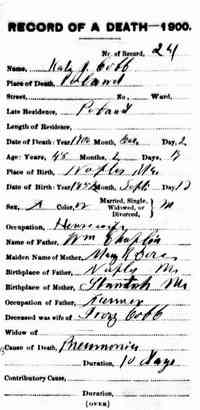 RECORD OF A DEATH—1900.
Nr. of Record, 24
Name, Kate J. Cobb
Place of Death, Poland
Street, No., Ward,
Late Residence, Poland
Length of Residence,
Date of Death: Year, 1900 Month, Day, 2
Age: Years, 48 Months, 2 Days,
Place of Birth, Naples Me.
Date of Birth: Year, Month, Sept. Day, 12
Sex, Color, Married, Single, Widowed, or Divorced, M
Occupation, Housewife
Name of Father, Wm Chaplin
Maiden Name of Mother, Mary
Birthplace of Father, Naples Me
Birthplace of Mother, Standish Me
Occupation of Father, Farmer
Deceased was wife of Cobb
Widow of
Cause of Death, Pneumonia
Duration, 10 days
Contributory Cause,
Duration,
(OVER)